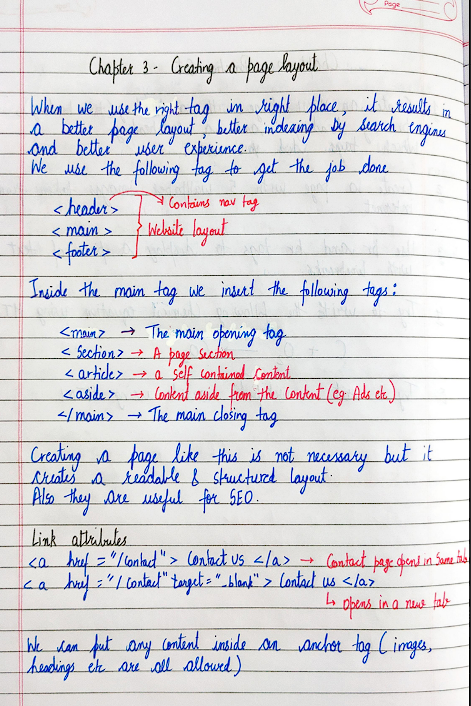 Page
Chapter 3 - Creating a page layout
When we use the right tag in right place, it results in
a better page layout, better indexing by search engines
and better user experience.
We use the following tag to get the job done
<header> → Contains nav tag
<main> } Website layout
<footer>
Inside the main tag we insert the following tags:
<main> → The main opening tag
<section> → A page section
<article> → a self contained content
<aside> → Content aside from the content (eg. Ads etc)
</main> → The main closing tag
Creating a page like this is not necessary but it
creates a readable & structured layout.
Also they are useful for SEO.
Link attributes
<a href = "/contact"> Contact us </a> → Contact page opens in same tab
<a href = "/contact" target = "_blank"> Contact us </a>
↳ opens in a new tab
We can put any content inside an anchor tag (images,
headings etc are all allowed)